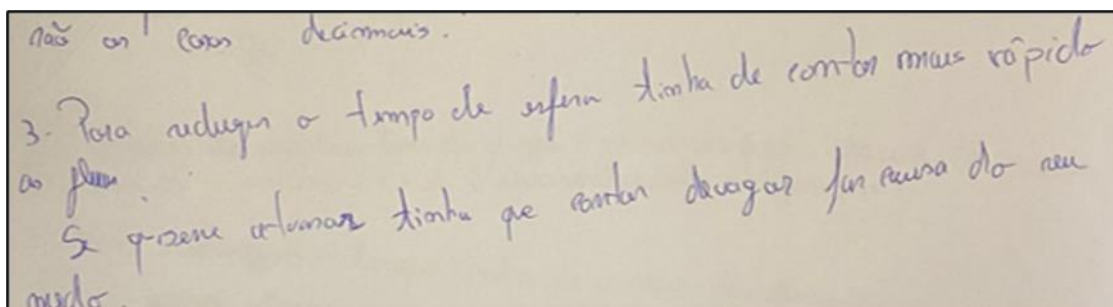 não as casas decimais.
3- Para reduzir o tempo de espera tinha de contar mais rápido
as
Se quisesse aumentar tinha que contar devagar por causa do seu
medo.